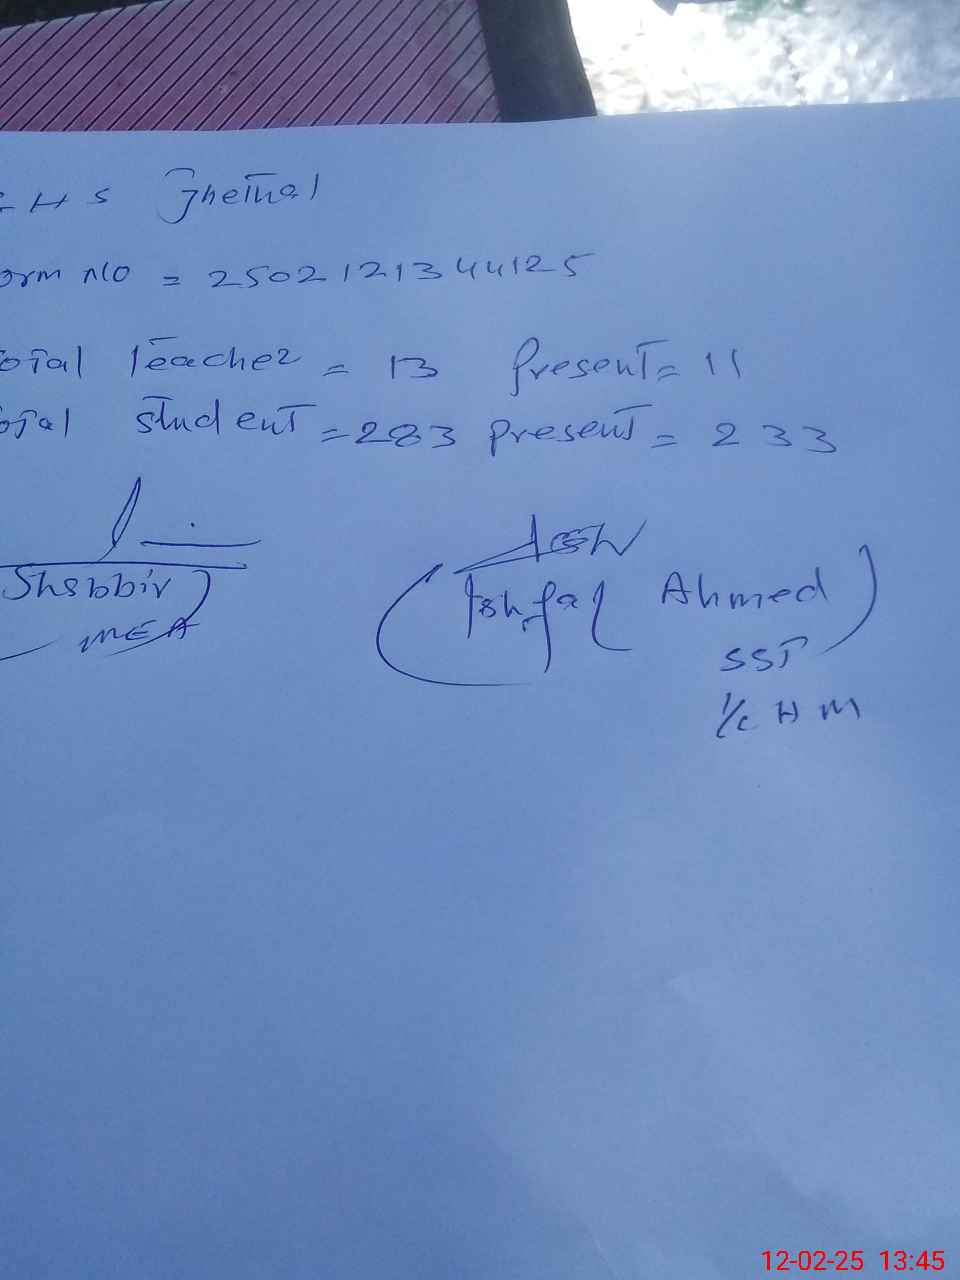 G H S Jhethal
orm No = 2502121344125
otal Teacher = 13 Present = 11
otal Student = 283 present = 233
Shabbir
MEA
Ishfaq Ahmed
SST
I/c H M
12-02-25 13:45